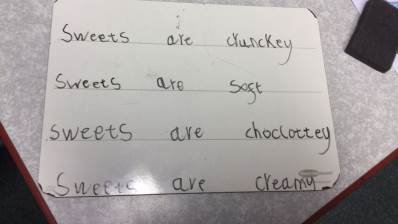 Sweets are crunckey
Sweets are soft
sweets are choclottey
Sweets are creamy